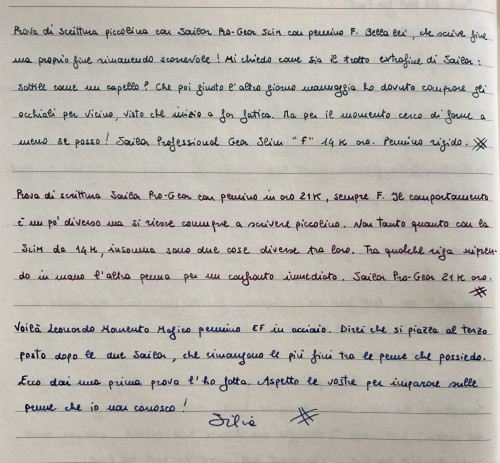 Prova di scrittura piccolina con Sailor Pro-Gear Slim con pennino F. Bella lei, che scrive fine
ma proprio fine rimanendo scorrevole! Mi chiedo come sia il tratto extrafine di Sailor:
sottile come un capello? Che poi giusto l'altro giorno mannaggia ho dovuto comprare gli
occhiali per vicino, visto che inizio a far fatica. Ma per il momento cerco di farne a
meno se posso! Sailor Professional Gear Slim "F" 14K oro. Pennino rigido.
Prova di scrittura Sailor Pro-Gear con pennino in oro 21K, sempre F. Il comportamento
è un po' diverso ma si riesce comunque a scrivere piccolino. Non tanto quanto con la
Slim da 14K, insomma sono due cose diverse tra loro. Tra qualche riga ripren-
do in mano l'altra penna per un confronto immediato. Sailor Pro-Gear 21K oro.
Voilà Leonardo Momento Magico pennino EF in acciaio. Direi che si piazza al terzo
posto dopo le due Sailor, che rimangono le più fini tra le penne che possiedo.
Ecco dai una prima prova l'ho fatta. Aspetto le vostre per imparare sulle
penne che io non conosco!
Silia